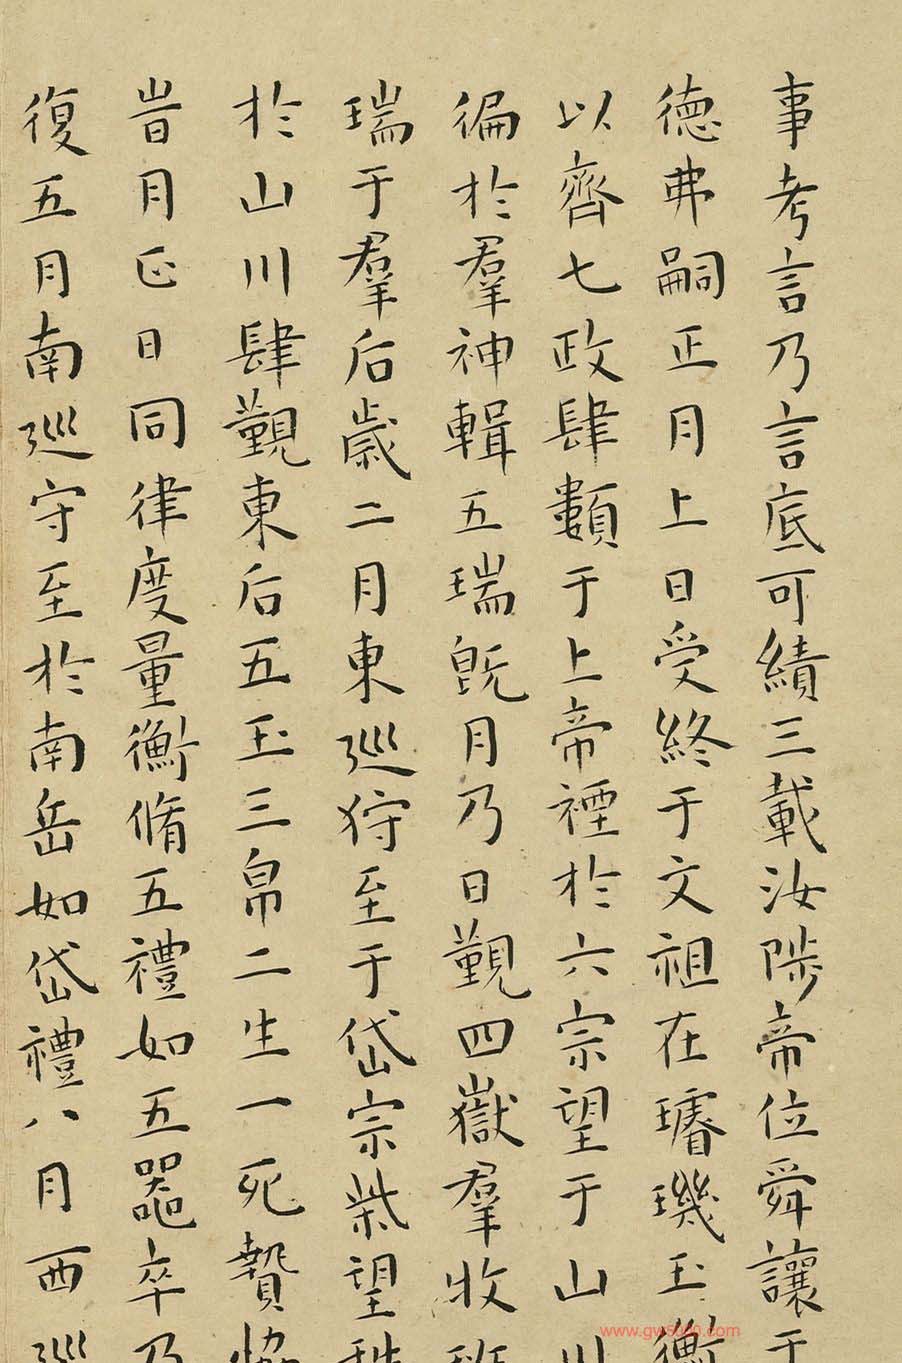 事考言乃言底可績三載汝陟帝位舜讓于
德弗嗣正月上日受終于文祖在璿璣玉衡
以齊七政肆類于上帝禋於六宗望于山川
徧於羣神輯五瑞旣月乃日覲四嶽羣牧班
瑞于羣后歲二月東巡狩至于岱宗柴望秩
於山川肆覲東后五玉三帛二生一死贄協
旹月正日同律度量衡脩五禮如五器卒乃
復五月南巡守至於南岳如岱禮八月西巡